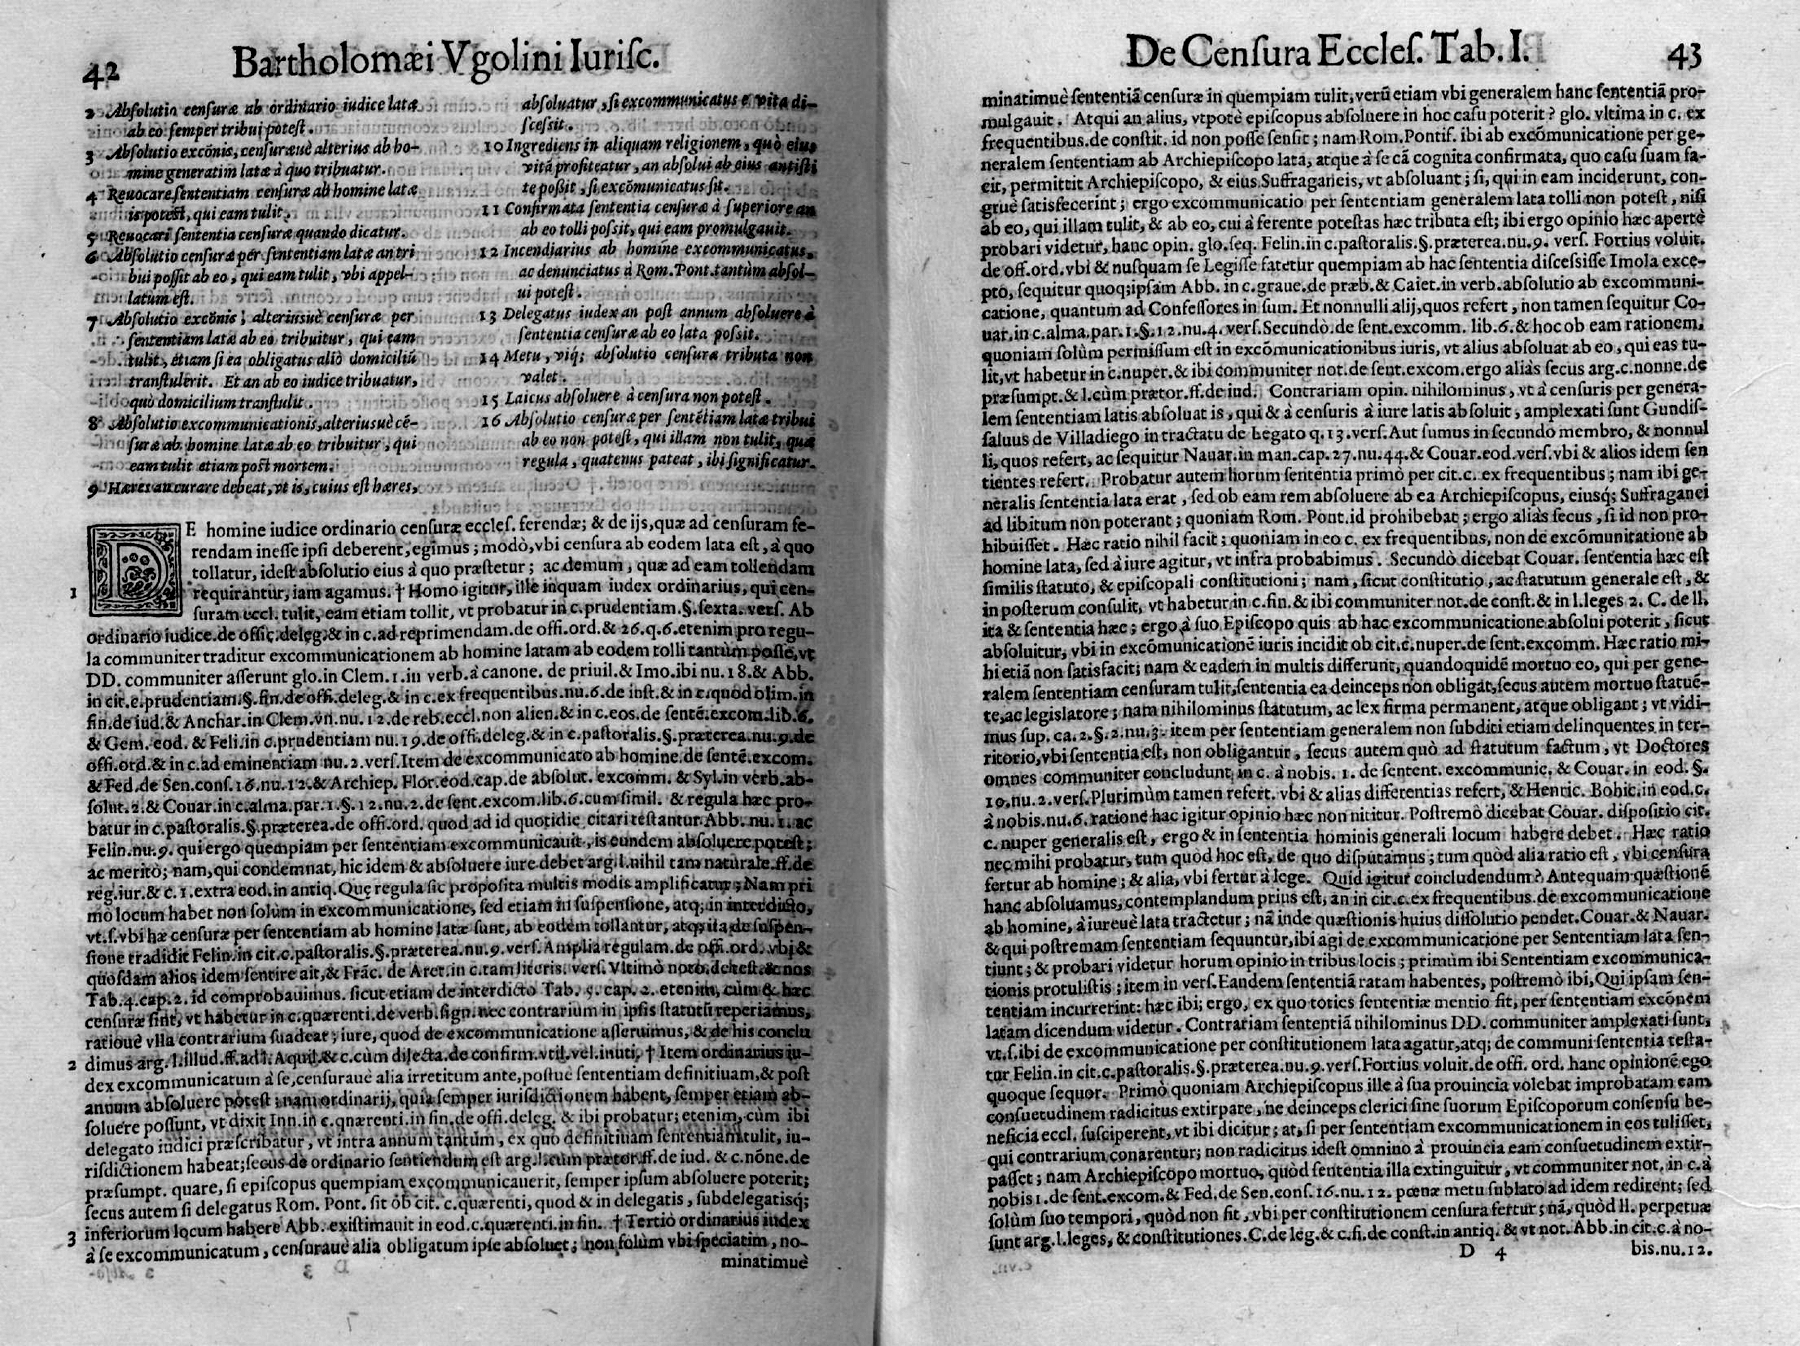 42 Bartholomæi Vgolini Iurisc.
2 Absolutio censuræ ab ordinario iudice latæ
ab eo semper tribui potest.
3 Absolutio excõnis, censuræuè alterius ab ho-
mine generatim latæ à quo tribuatur.
4 Reuocare sententiam censuræ ab homine latæ
is potest, qui eam tulit.
5 Reuocari sententia censuræ quando dicatur.
6 Absolutio censuræ per sententiam latæ an tri
bui possit ab eo, qui eam tulit, vbi appel-
latum est.
7 Absolutio excõnis, alteriusuè censuræ per
sententiam latæ ab eo tribuitur, qui eam
tulit, etiam si ea obligatus aliò domiciliũ
transtulerit. Et an ab eo iudice tribuatur,
quò domicilium transtulit.
8 Absolutio excommunicationis, alteriusuè cẽ-
suræ ab homine latæ ab eo tribuitur, qui
eam tulit etiam post mortem.
9 Hæres an curare debeat, vt is, cuius est hæres,
absoluatur, si excommunicatus e vita di-
scessit.
10 Ingrediens in aliquam religionem, quò eius
vitã profiteatur, an absolui ab eius antisti
te possit, si excõmunicatus sit.
11 Confirmata sententia censuræ à superiore an
ab eo tolli possit, qui eam promulgauit.
12 Incendiarius ab homine excommunicatus,
ac denunciatus à Rom. Pont. tantùm absol-
ui potest.
13 Delegatus iudex an post annum absoluere à
sententia censuræ ab eo lata possit.
14 Metu, viq; absolutio censuræ tributa non
valet.
15 Laicus absoluere à censura non potest.
16 Absolutio censuræ per sentẽtiam latæ tribui
ab eo non potest, qui illam non tulit, quæ
regula, quatenus pateat, ibi significatur.
DE homine iudice ordinario censuræ eccles. ferendæ; & de ijs, quæ ad censuram fe-
rendam inesse ipsi deberent, egimus; modò, vbi censura ab eodem lata est, à quo
tollatur, idest absolutio eius à quo præstetur; ac demum, quæ ad eam tollendam
1 requirantur, iam agamus. † Homo igitur, ille inquam iudex ordinarius, qui cen-
suram eccl. tulit, eam etiam tollit, vt probatur in c. prudentiam. §. sexta. vers. Ab
ordinario iudice. de offic. deleg. & in c. ad reprimendam. de offi. ord. & 26. q. 6. etenim pro regu-
la communiter traditur excommunicationem ab homine latam ab eodem tolli tantùm posse, vt
DD. communiter asserunt glo. in Clem. 1. in verb. à canone. de priuil. & Imo. ibi nu. 18. & Abb.
in cit. c. prudentiam. §. fin. de offi. deleg. & in c. ex frequentibus. nu. 6. de inst. & in c. quod olim. in
fin. de iud. & Anchar. in Clem. vn. nu. 12. de reb. eccl. non alien. & in c. eos. de sentẽ. excom. lib. 6.
& Gem. eod. & Feli. in c. prudentiam nu. 19. de offi. deleg. & in c. pastoralis. §. præterea. nu. 9. de
offi. ord. & in c. ad eminentiam nu. 2. vers. Item de excommunicato ab homine. de sentẽ. excom.
& Fed. de Sen. cons. 16. nu. 12. & Archiep. Flor. eod. cap. de absolut. excommi. & Syl. in verb. ab-
solut. 2. & Couar. in c. alma. par. 1. §. 12. nu. 2. de sent. excom. lib. 6. cum simil. & regula hæc pro-
batur in c. pastoralis. §. præterea. de offi. ord. quod ad id quotidie citari testantur Abb. nu. 1. ac
Felin. nu. 9. qui ergo quempiam per sententiam excommunicauit, is eundem absoluere potest;
ac meritò; nam, qui condemnat, hic idem & absoluere iure debet arg. l. nihil tam naturale. ff. de
reg. iur. & c. 1. extra eod. in antiq. Quę regula sic proposita multis modis amplificatur; Nam pri
mò locum habet non solùm in excommunicatione, sed etiam in suspensione, atq; in interdicto,
vt. s. vbi hæ censuræ per sententiam ab homine latæ sunt, ab eodem tollantur, atq; ita de suspen-
sione tradidit Felin. in cit. c. pastoralis. §. præterea. nu. 9. vers. Amplia regulam. de offi. ord. vbi &
quosdam alios idem sentire ait, & Frãc. de Aret. in c. tam literis. vers. Vltimò noto. de test. & nos
Tab. 4. cap. 2. id comprobauimus. sicut etiam de interdicto Tab. 5. cap. 2. etenim, cùm & hæc
censuræ sint, vt habetur in c. quærenti. de verb. sign. nec contrarium in ipsis statutũ reperiamus,
ratioue vlla contrarium suadeat; iure, quod de excommunicatione asseruimus, & de his conclu
2 dimus arg. l. illud. ff. ad l. Aquil. & c. cùm dilecta. de confirm. vtil. vel. inuti. † Item ordinarius iu-
dex excommunicatum à se, censuraue alia irretitum ante, postue sententiam definitiuam, & post
annum absoluere potest; nam ordinarij, quia semper iurisdictionem habent, semper etiam ab-
soluere possunt, vt dixit Inn. in c. quærenti. in fin. de offi. deleg. & ibi probatur; etenim, cùm ibi
delegato iudici præscribatur, vt intra annum tantùm, ex quo definitiuam sententiam tulit, iu-
risdictionem habeat; secus de ordinario sentiendum est arg. l. cùm prætor. ff. de iud. & c. nõne. de
præsumpt. quare, si episcopus quempiam excommunicauerit, semper ipsum absoluere poterit;
secus autem si delegatus Rom. Pont. sit ob cit. c. quærenti, quod & in delegatis, subdelegatisq;
3 inferiorum locum habere Abb. existimauit in eod. c. quærenti. in fin. † Tertiò ordinarius iudex
à se excommunicatum, censuraue alia obligatum ipse absoluet; non solùm vbi speciatim, no-
minatimuè
De Censura Eccles. Tab. I. 43
minatimuè sententiã censuræ in quempiam tulit, verũ etiam vbi generalem hanc sententiã pro-
mulgauit. Atqui an alius, vtpotè episcopus absoluere in hoc casu poterit? glo. vltima in c. ex
frequentibus. de constit. id non posse sensit; nam Rom. Pontif. ibi ab excõmunicatione per ge-
neralem sententiam ab Archiepiscopo lata, atque à se cã cognita confirmata, quo casu suam fa-
cit, permittit Archiepiscopo, & eius Suffraganeis, vt absoluant; si, qui in eam inciderunt, con-
gruè satisfecerint; ergo excommunicatio per sententiam generalem lata tolli non potest, nisi
ab eo, qui illam tulit, & ab eo, cui à ferente potestas hæc tributa est; ibi ergo opinio hæc apertè
probari videtur, hanc opin. glo. seq. Felin. in c. pastoralis. §. præterea. nu. 9. vers. Fortius voluit.
de off. ord. vbi & nusquam se Legisse fatetur quempiam ab hac sententia discessisse Imola exce-
pto, sequitur quoq; ipsam Abb. in c. graue. de præb. & Caiet. in verb. absolutio ab excommuni-
catione, quantum ad Confessores in sum. Et nonnulli alij, quos refert, non tamen sequitur Co-
uar. in c. alma. par. 1. §. 12. nu. 4. vers. Secundò. de sent. excomm. lib. 6. & hoc ob eam rationem,
quoniam solùm permissum est in excõmunicationibus iuris, vt alius absoluat ab eo, qui eas tu-
lit, vt habetur in c. nuper. & ibi communiter not. de sent. excom. ergo aliàs secus arg. c. nonne. de
præsumpt. & l. cùm prætor. ff. de iud. Contrariam opin. nihilominus, vt à censuris per genera-
lem sententiam latis absoluat is, qui & à censuris à iure latis absoluit, amplexati sunt Gundis-
saluus de Villadiego in tractatu de Legato q. 13. vers. Aut sumus in secundo membro, & nonnul
li, quos refert, ac sequitur Nauar. in man. cap. 27. nu. 44. & Couar. eod. vers. vbi & alios idem sen
tientes refert. Probatur autem horum sententia primò per cit. c. ex frequentibus; nam ibi ge-
neralis sententia lata erat, sed ob eam rem absoluere ab ea Archiepiscopus, eiusq; Suffraganei
ad libitum non poterant; quoniam Rom. Pont. id prohibebat; ergo aliàs secus, si id non pro-
hibuisset. Hæc ratio nihil facit; quoniam in eo c. ex frequentibus, non de excõmunicatione ab
homine lata, sed à iure agitur, vt infra probabimus. Secundò dicebat Couar. sententia hæc est
similis statuto, & episcopali constitutioni; nam, sicut constitutio, ac statutum generale est, &
in posterum consulit, vt habetur in c. fin. & ibi communiter not. de const. & in l. leges 2. C. de ll.
ita & sententia hæc; ergo à suo Episcopo quis ab hac excommunicatione absolui poterit, sicut
absoluitur, vbi in excõmunicationẽ iuris incidit ob cit. c. nuper. de sent. excomm. Hæc ratio mi-
hi etiã non satisfacit; nam & eadem in multis differunt, quandoquidẽ mortuo eo, qui per gene-
ralem sententiam censuram tulit, sententia ea deinceps non obligat, secus autem mortuo statuẽ-
te, ac legislatore; nam nihilominus statutum, ac lex firma permanent, atque obligant; vt vidi-
mus sup. ca. 2. §. 2. nu. 3. item per sententiam generalem non subditi etiam delinquentes in ter-
ritorio, vbi sententia est, non obligantur, secus autem quò ad statutum factum, vt Doctores
omnes communiter concludunt in c. à nobis. 1. de sentent. excommunic. & Couar. in eod. §.
10. nu. 2. vers. Plurimùm tamen refert. vbi & alias differentias refert, & Henric. Bohic. in eod. c.
à nobis. nu. 6. ratione hac igitur opinio hæc non nititur. Postremò dicebat Couar. dispositio cit.
c. nuper generalis est, ergo & in sententia hominis generali locum habere debet. Hæc ratio
nec mihi probatur, tum quòd hoc est, de quo disputamus; tum quòd alia ratio est, vbi censura
fertur ab homine; & alia, vbi fertur à lege. Quid igitur concludendum? Antequam quæstionẽ
hanc absoluamus, contemplandum prius est, an in cit. c. ex frequentibus. de excommunicatione
ab homine, à iureuè lata tractetur; nã inde quæstionis huius dissolutio pendet. Couar. & Nauar.
& qui postremam sententiam sequuntur, ibi agi de excommunicatione per Sententiam lata sen-
tiunt; & probari videtur horum opinio in tribus locis; primùm ibi Sententiam excommunica-
tionis protulistis; item in vers. Eandem sententiã ratam habentes, postremò ibi, Qui ipsam sen-
tentiam incurrerint: hæc ibi; ergo, ex quo toties sententiæ mentio fit, per sententiam excõnem
latam dicendum videtur. Contrariam sententiã nihilominus DD. communiter amplexati sunt,
vt. s. ibi de excommunicatione per constitutionem lata agatur, atq; de communi sententia testa-
tur Felin. in cit. c. pastoralis. §. præterea. nu. 9. vers. Fortius voluit. de offi. ord. hanc opinionẽ ego
quoque sequor. Primò quoniam Archiepiscopus ille à sua prouincia volebat improbatam eam
consuetudinem radicitus extirpare, ne deinceps clerici sine suorum Episcoporum consensu be-
neficia eccl. susciperent, vt ibi dicitur; at, si per sententiam excommunicationem in eos tulisset,
qui contrarium conarentur; non radicitus idest omnino à prouincia eam consuetudinem extir-
passet; nam Archiepiscopo mortuo, quòd sententia illa extinguitur, vt communiter not. in c. à
nobis 1. de sent. excom. & Fed. de Sen. cons. 16. nu. 12. pœnæ metu sublato ad idem redirent; sed
solùm suo tempori, quòd non sit, vbi per constitutionem censura fertur; nã, quòd ll. perpetuæ
sunt arg. l. leges, & constitutiones. C. de leg. & c. fi. de const. in antiq. & vt not. Abb. in cit. c. à no-
D 4 bis. nu. 12.